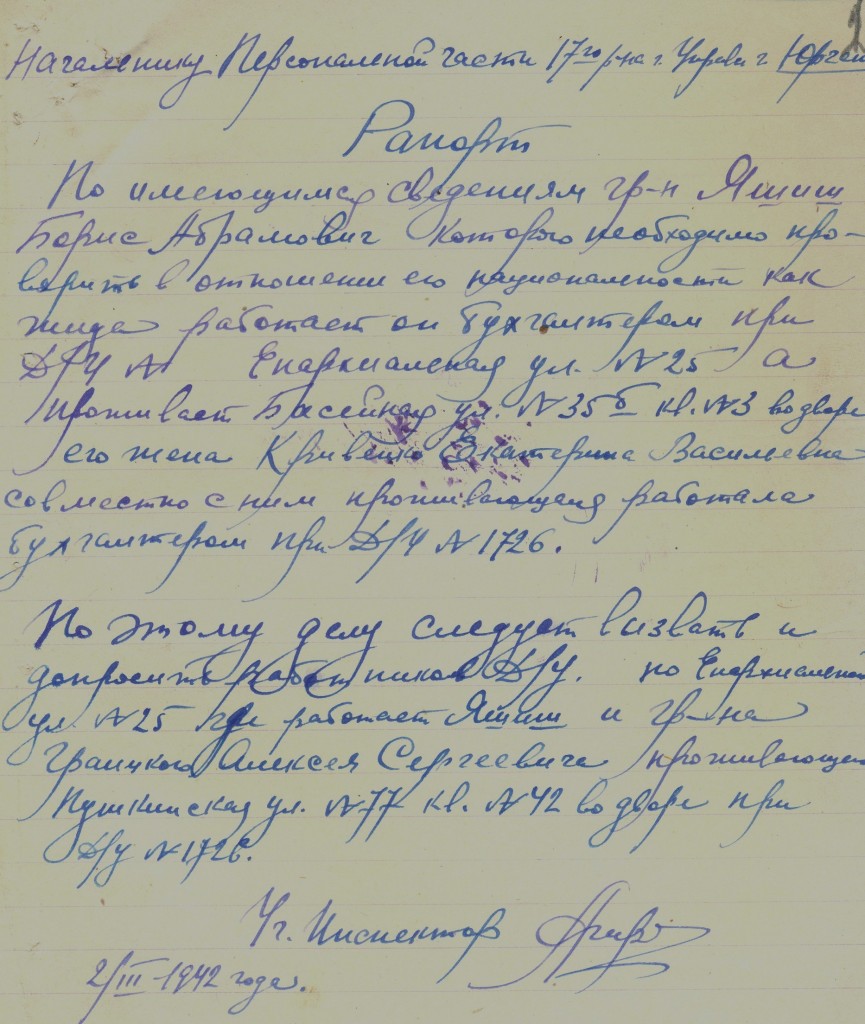 1
Началенику Персоналеной части 17го р-на г. Управи г Юрген
Рапорт
По имеющимся сведениям гр-н Яшиш
Борис Абрамович которого необходимо про-
верить в отношении его националености как
жида работает он бухгалтером при
Д/У № Епархиалеская ул. № 25 а
проживает Бассейная ул. № 35 б кв. № 3 во дворе
его жена Кривенко Екатерина Василевна
совместно с ним проживающая работала
бухгалтером при Д/У № 1726.
По этому делу следует визвать и
допросить работников Д/У. по Епархиалеской
ул. № 25 где работает Яшиш и гр-на
Граицкого Алексея Сергеевича проживающе
Пушкинская ул. № 77 кв. № 42 во дворе при
Д/У № 1726.
Уг. Инспектор
2/III-1942 года.